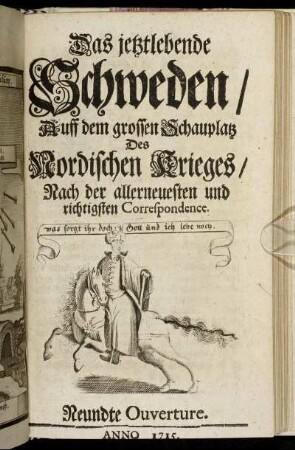 Das jetztlebende
Schweden /
Auff dem grossen Schauplatz
Des
Nordischen Krieges /
Nach der allerneuesten und
richtigsten Correspondence.
was sorgt ihr doch; Gott und ich lebe noch.
Neundte Ouverture.
ANNO 1715.